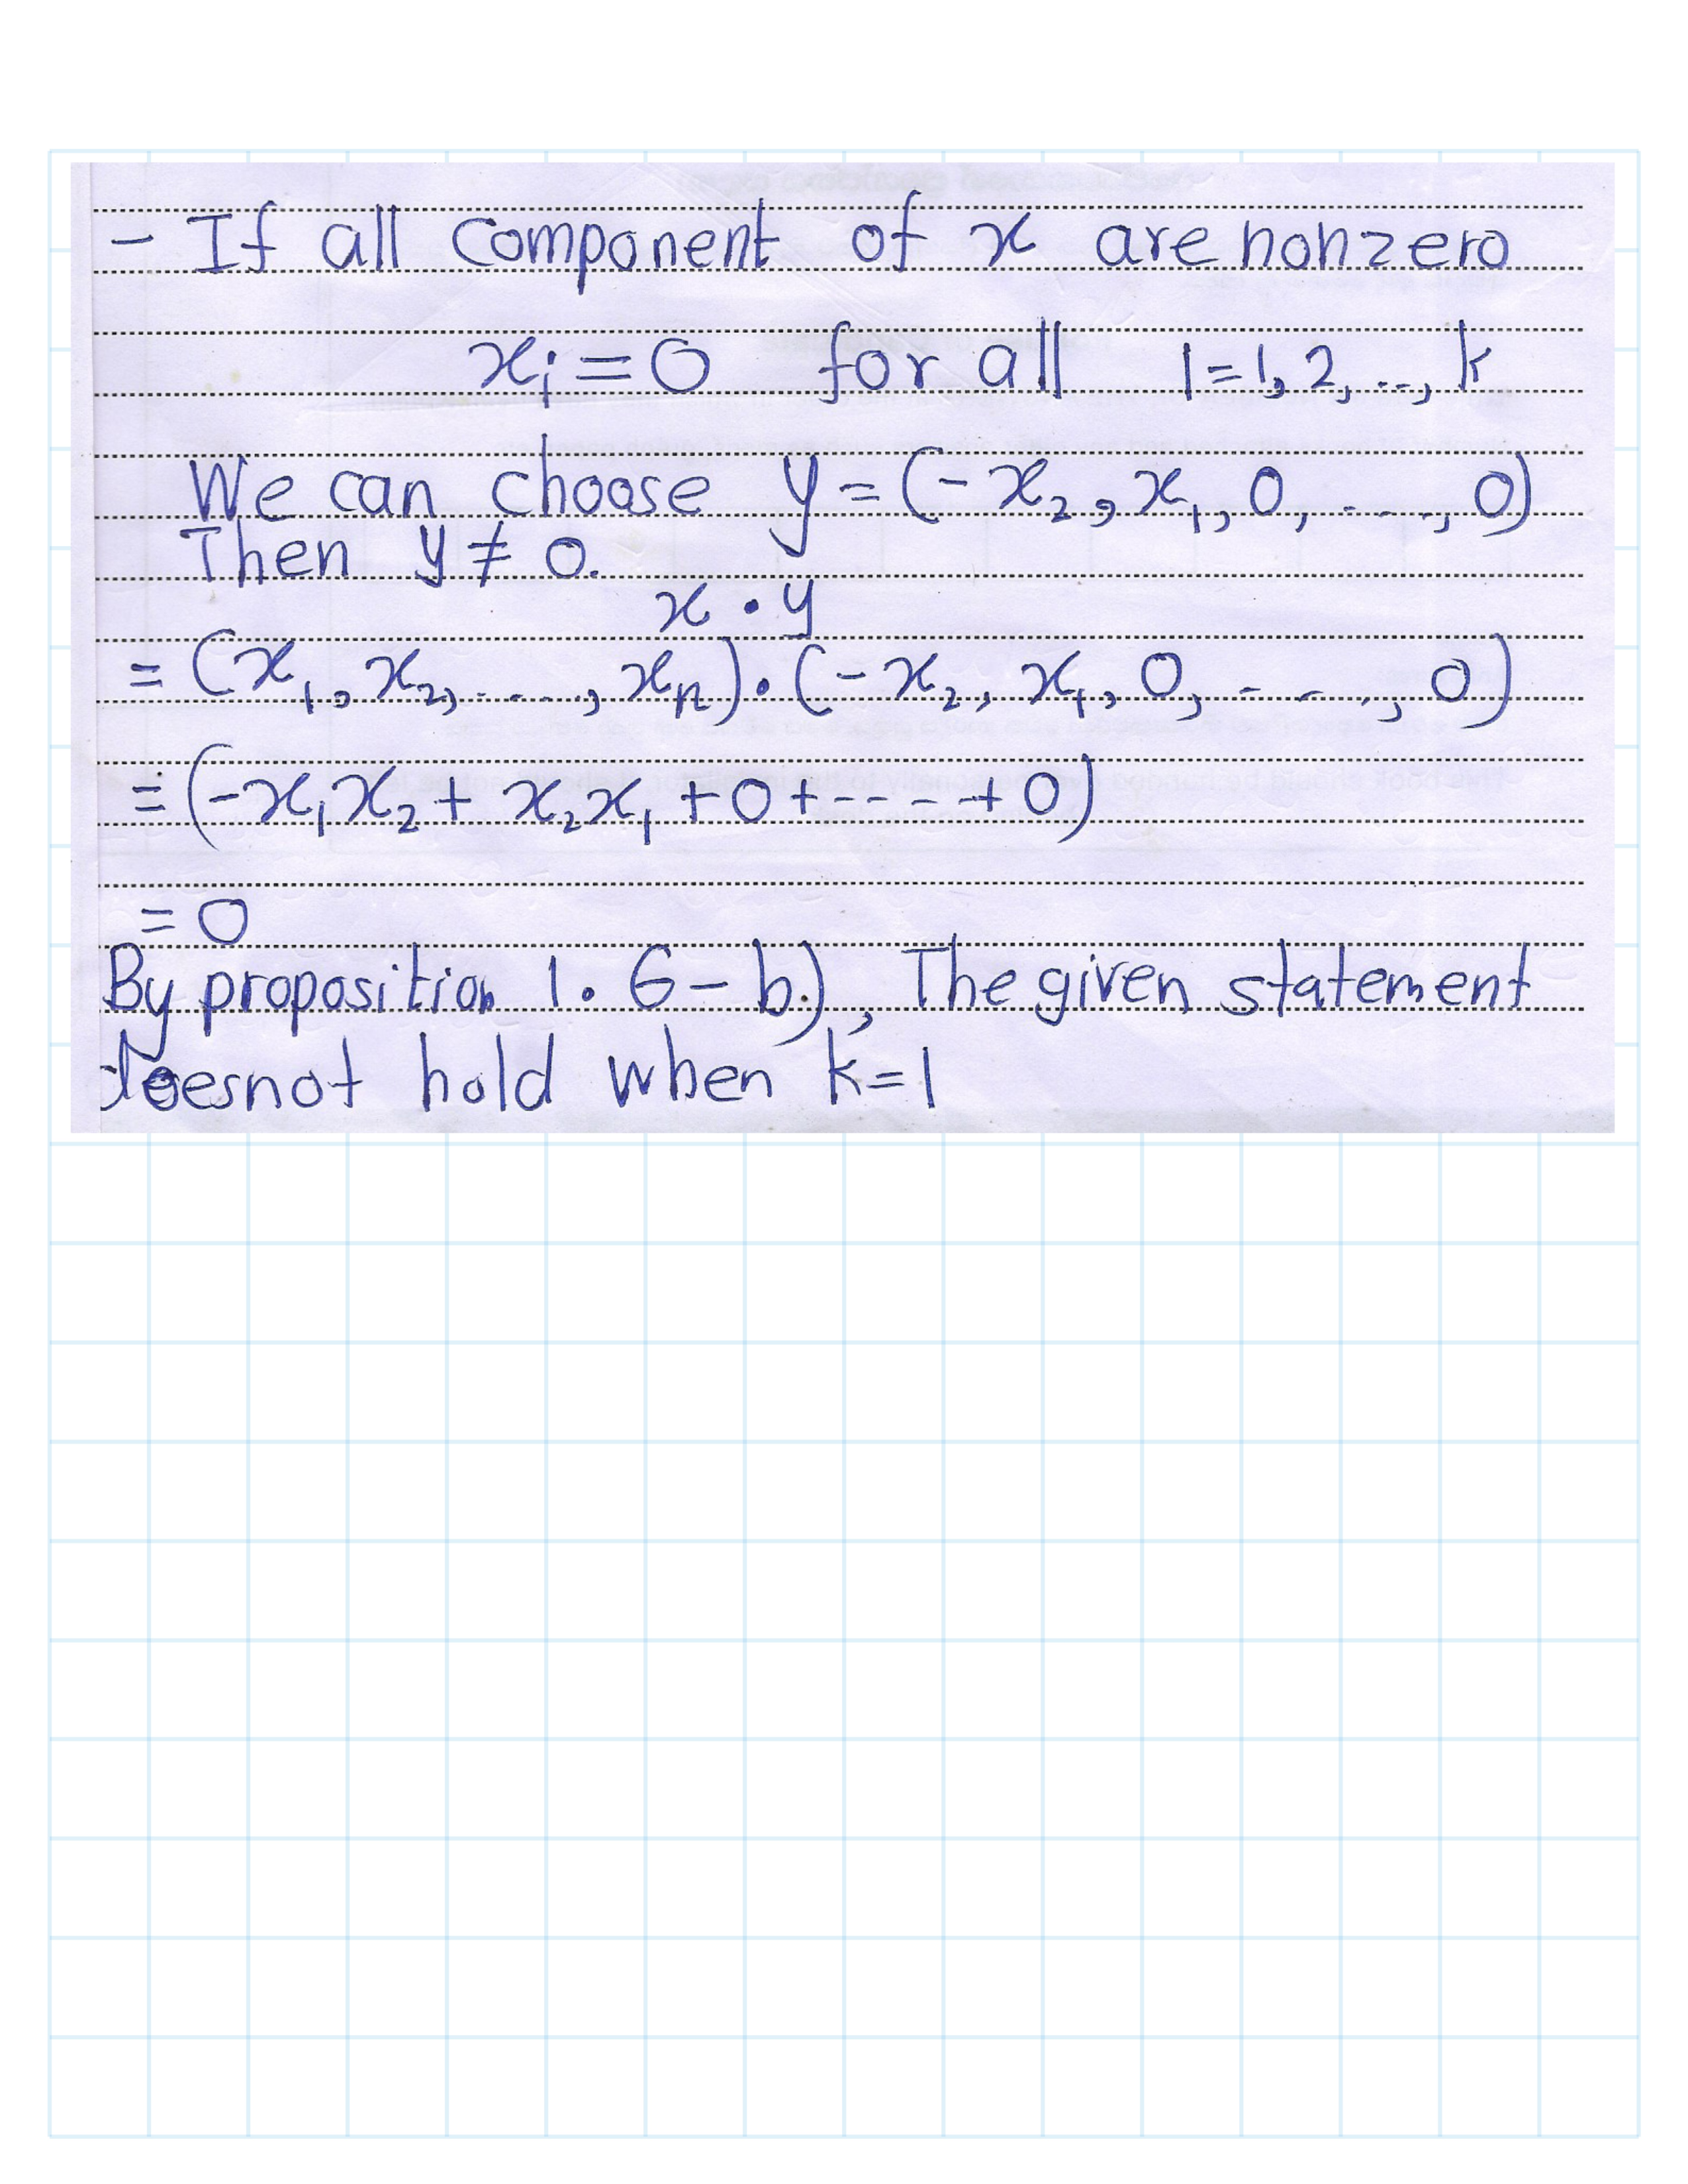 - If all component of x are nonzero
xᵢ = 0 for all 1=1,2,...,k
We can choose y = (-x₂, x₁, 0, ....., 0)
Then y ≠ 0.
x . y
= (x₁, x₂, ....., xₙ) . (-x₂, x₁, 0, - - --, 0)
= (-x₁x₂ + x₂x₁ + 0 + - - - - + 0)
= 0
By proposition 1.6-b), The given statement
doesnot hold when k=1